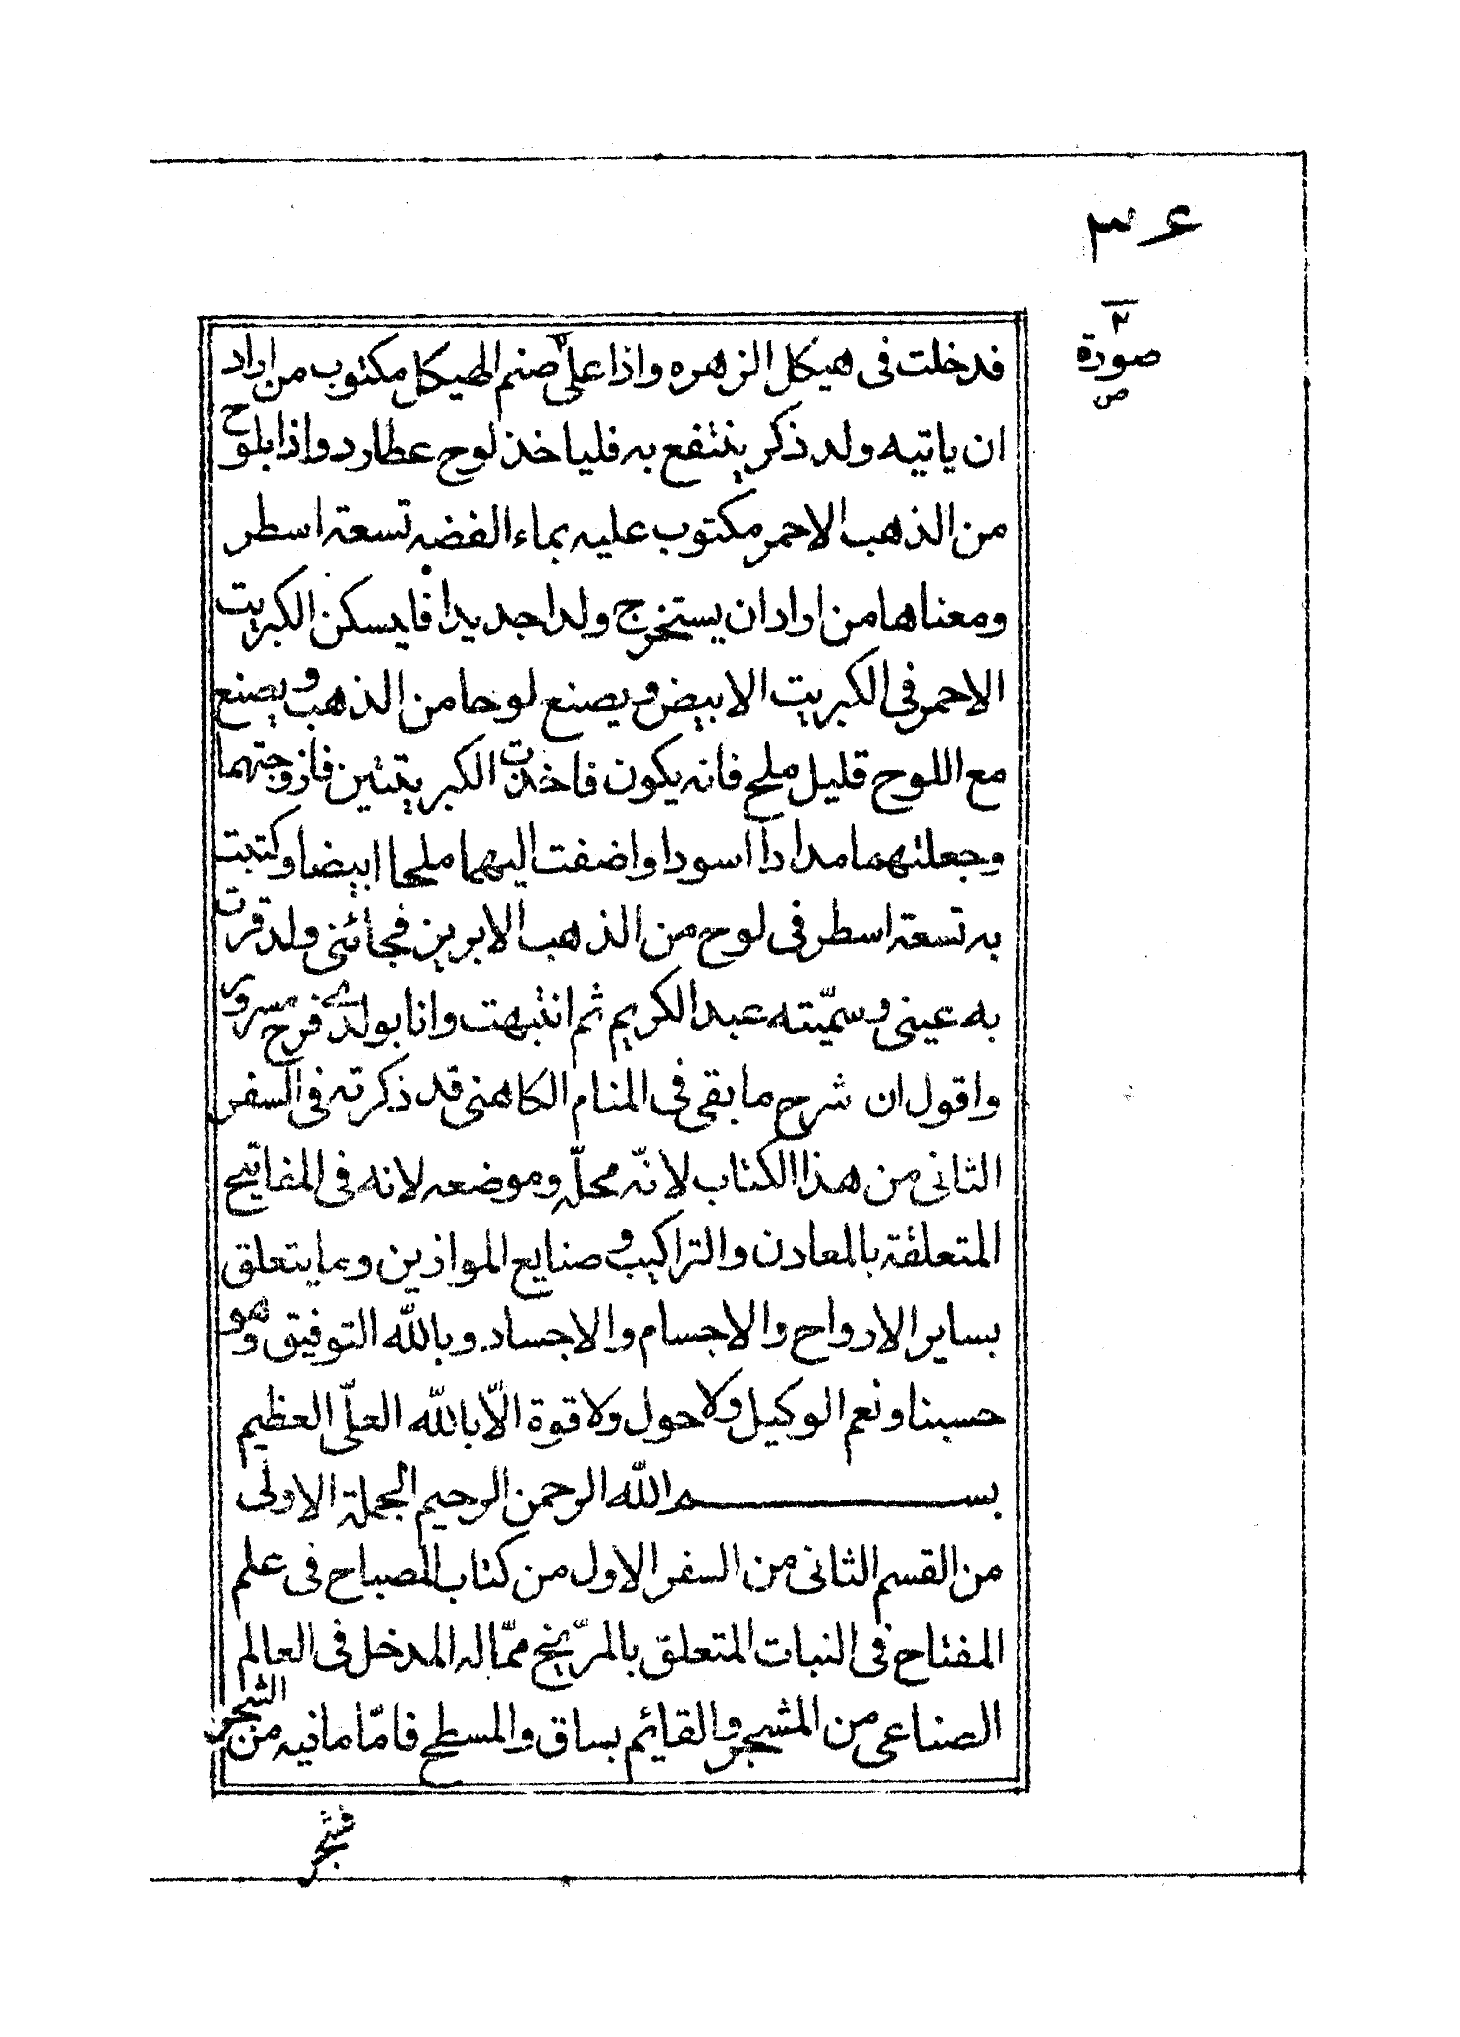 ٣٤
٢
صورة
ص
فدخلت فى هيكل الزهره واذا على٢ صنم الهيكل مكتوب من اراد
ان ياتيه ولد ذكر ينتفع به فلياخذ لوح عطارد واذا بلوح
من الذهب الاحمر مكتوب عليه بماء الفضه تسعة اسطر
ومعناها من اراد ان يستخرج ولدا جديدا فليسكن الكبريت
الاحمر فى الكبريت الابيض ويصنع لوحا من الذهب ويصنع
مع اللوح قليل ملح فانه يكون فاخذت الكبريتتين فازوجتهما
وجعلتهما مدادا اسودا واضفت اليهما ملحا ابيضا وكتبت
به تسعة اسطر فى لوح من الذهب الابريز فجائنى ولد قرت
به عينى وسمّيته عبد الكريم ثم انتبهت وانا بولدى فرح مسرور
واقول ان شرح ما بقى فى المنام الكاهنى قد ذكرته فى السفر
الثانى من هذا الكتاب لانّه محلّه وموضعه لانه فى المفاتيح
المتعلقة بالمعادن والتراكيب وصنايع الموازين وما يتعلق
بساير الارواح والاجسام والاجساد وبالله التوفيق وهو
حسبنا ونعم الوكيل ولا حول ولا قوة الّا بالله العلّى العظيم
بسم الله الرحمن الرحيم الجملة الاولى
من القسم الثانى من السفر الاول من كتاب المصباح فى علم
المفتاح فى النبات المتعلق بالمرّيخ ممّا له المدخل فى العالم
الصناعى من المشجر والقائم بساق والمسطح فامّا ما فيه من الشجر
فشجر